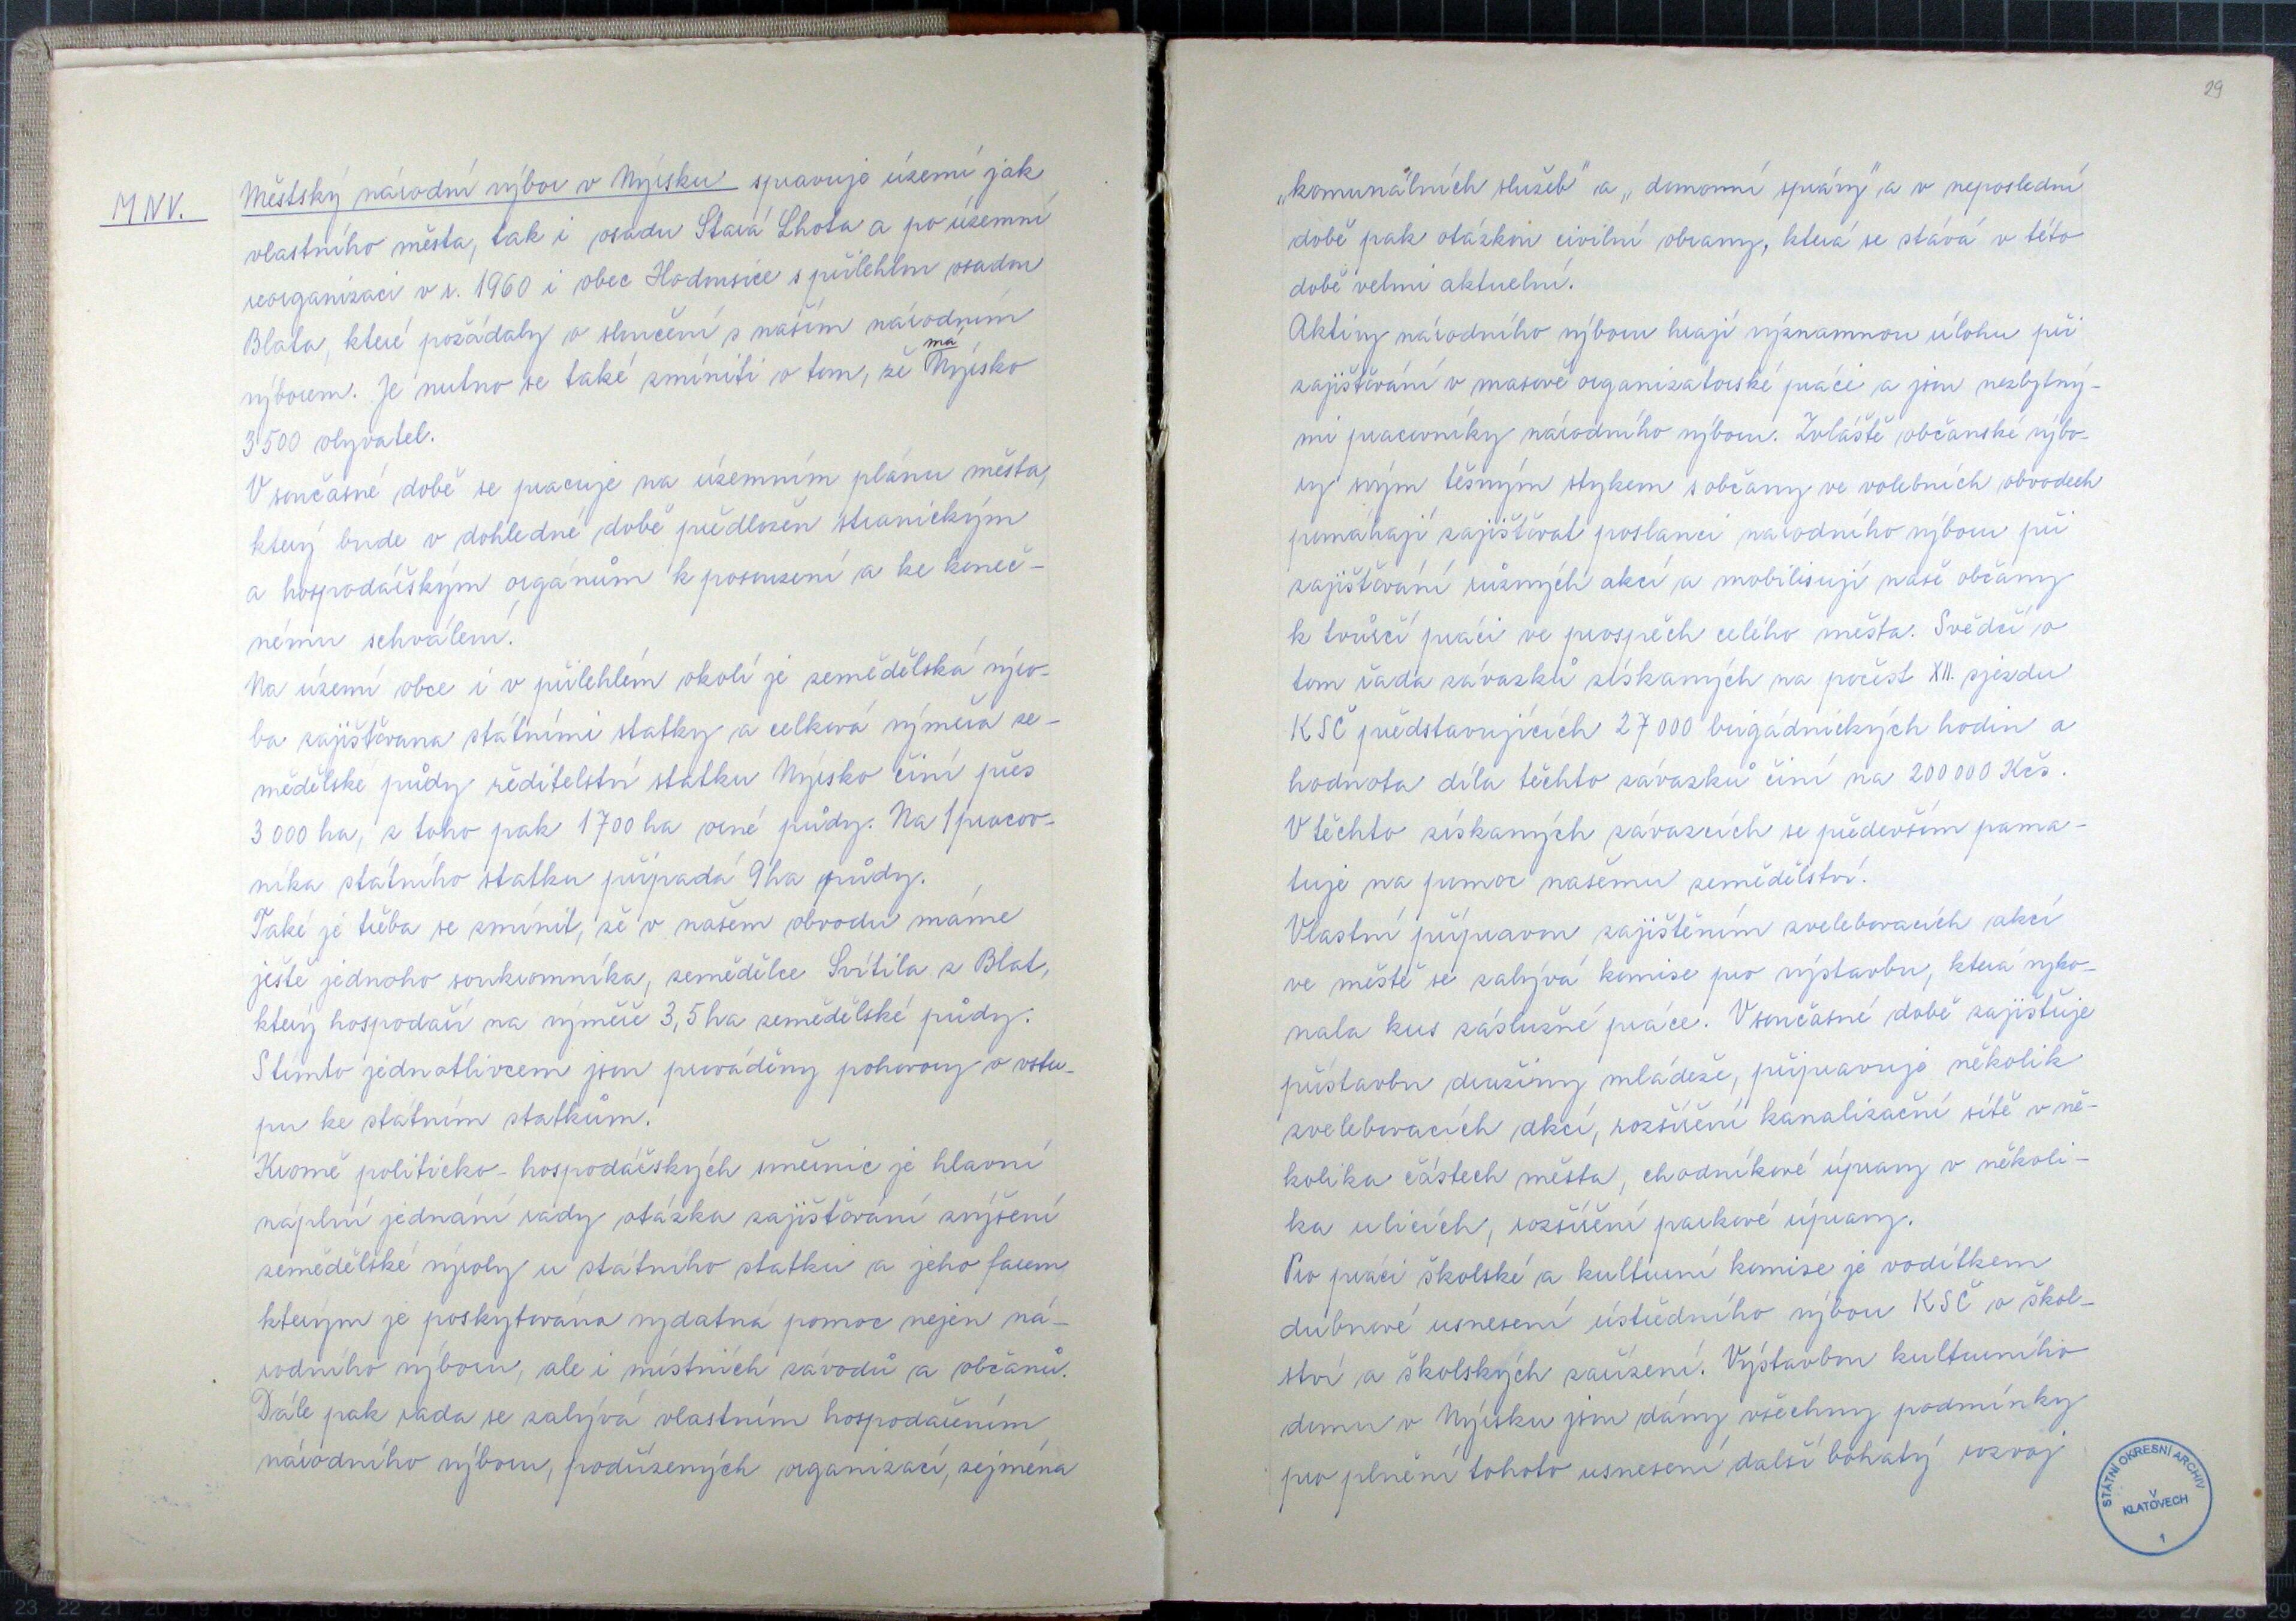 MNV.
Městský národní výbor v Nýrsku spravuje území jak
vlastního města, tak i osadu Stará Lhota a po územní
reorganizaci v r. 1960 i obec Hodousice s přilehlou osadou
Blata, které požádaly o sloučení s naším národním
výborem. Je nutno se také zmíniti o tom, že má Nýrsko
3 500 obyvatel.
V současné době se pracuje na územním plánu města,
který bude v dohledné době předložen stranickým
a hospodářským orgánům k posouzení a ke koneč-
nému schválení.
Na území obce i v přilehlém okolí je zemědělská výro-
ba zajišťována státními statky a celková výměra ze-
mědělské půdy ředitelství statku Nýrsko činí přes
3 000 ha, z toho pak 1700 ha orné půdy. Na 1 pracov-
níka státního statku připadá 9 ha půdy.
Také je třeba se zmínit, že v našem obvodu máme
ještě jednoho soukromníka, zemědělce Svítila z Blat,
který hospodaří na výměře 3,5 ha zemědělské půdy.
S tímto jednotlivcem jsou prováděny pohovory o vstu-
pu ke státním statkům.
Kromě politicko-hospodářských směrnic je hlavní
náplní jednání rady otázka zajišťování zvýšení
zemědělské výroby u státního statku a jeho farem
kterým je poskytována vydatná pomoc nejen ná-
rodního výboru, ale i místních závodů a občanů.
Dále pak rada se zabývá vlastním hospodařením
národního výboru, podřízených organizací, zejména
29
„komunálních služeb" a „domovní správy" a v neposlední
době pak otázkou civilní obrany, která se stává v této
době velmi aktuelní.
Aktivy národního výboru hrají významnou úlohu při
zajišťování v masově organizátorské práci a jsou nezbytný-
mi pracovníky národního výboru. Zvláště občanské výbo-
ry svým těsným stykem s občany ve volebních obvodech
pomáhají zajišťovat poslanci národního výboru při
zajišťování různých akcí a mobilisují naše občany
k tvůrčí práci ve prospěch celého města. Svědčí o
tom řada závazků získaných na počest XII. sjezdu
KSČ představujících 27 000 brigádnických hodin a
hodnota díla těchto závazků činí na 200 000 Kčs.
V těchto získaných závazcích se především pama-
tuje na pomoc našemu zemědělství.
Vlastní přípravou zajištěním zvelebovacích akcí
ve městě se zabývá komise pro výstavbu, která vyko-
nala kus záslužné práce. V současné době zajišťuje
přístavbu družiny mládeže, připravuje několik
zvelebovacích akcí, rozšíření kanalizační sítě v ně-
kolika částech města, chodníkové úpravy v několi-
ka ulicích, rozšíření parkové úpravy.
Pro práci školské a kulturní komise je vodítkem
dubnové usnesení ústředního výboru KSČ o škol-
ství a školských zařízení. Výstavbou kulturního
domu v Nýrsku jsou dány všechny podmínky
pro plnění tohoto usnesení další bohatý rozvoj
STÁTNÍ OKRESNÍ ARCHIV
V
KLATOVECH
1